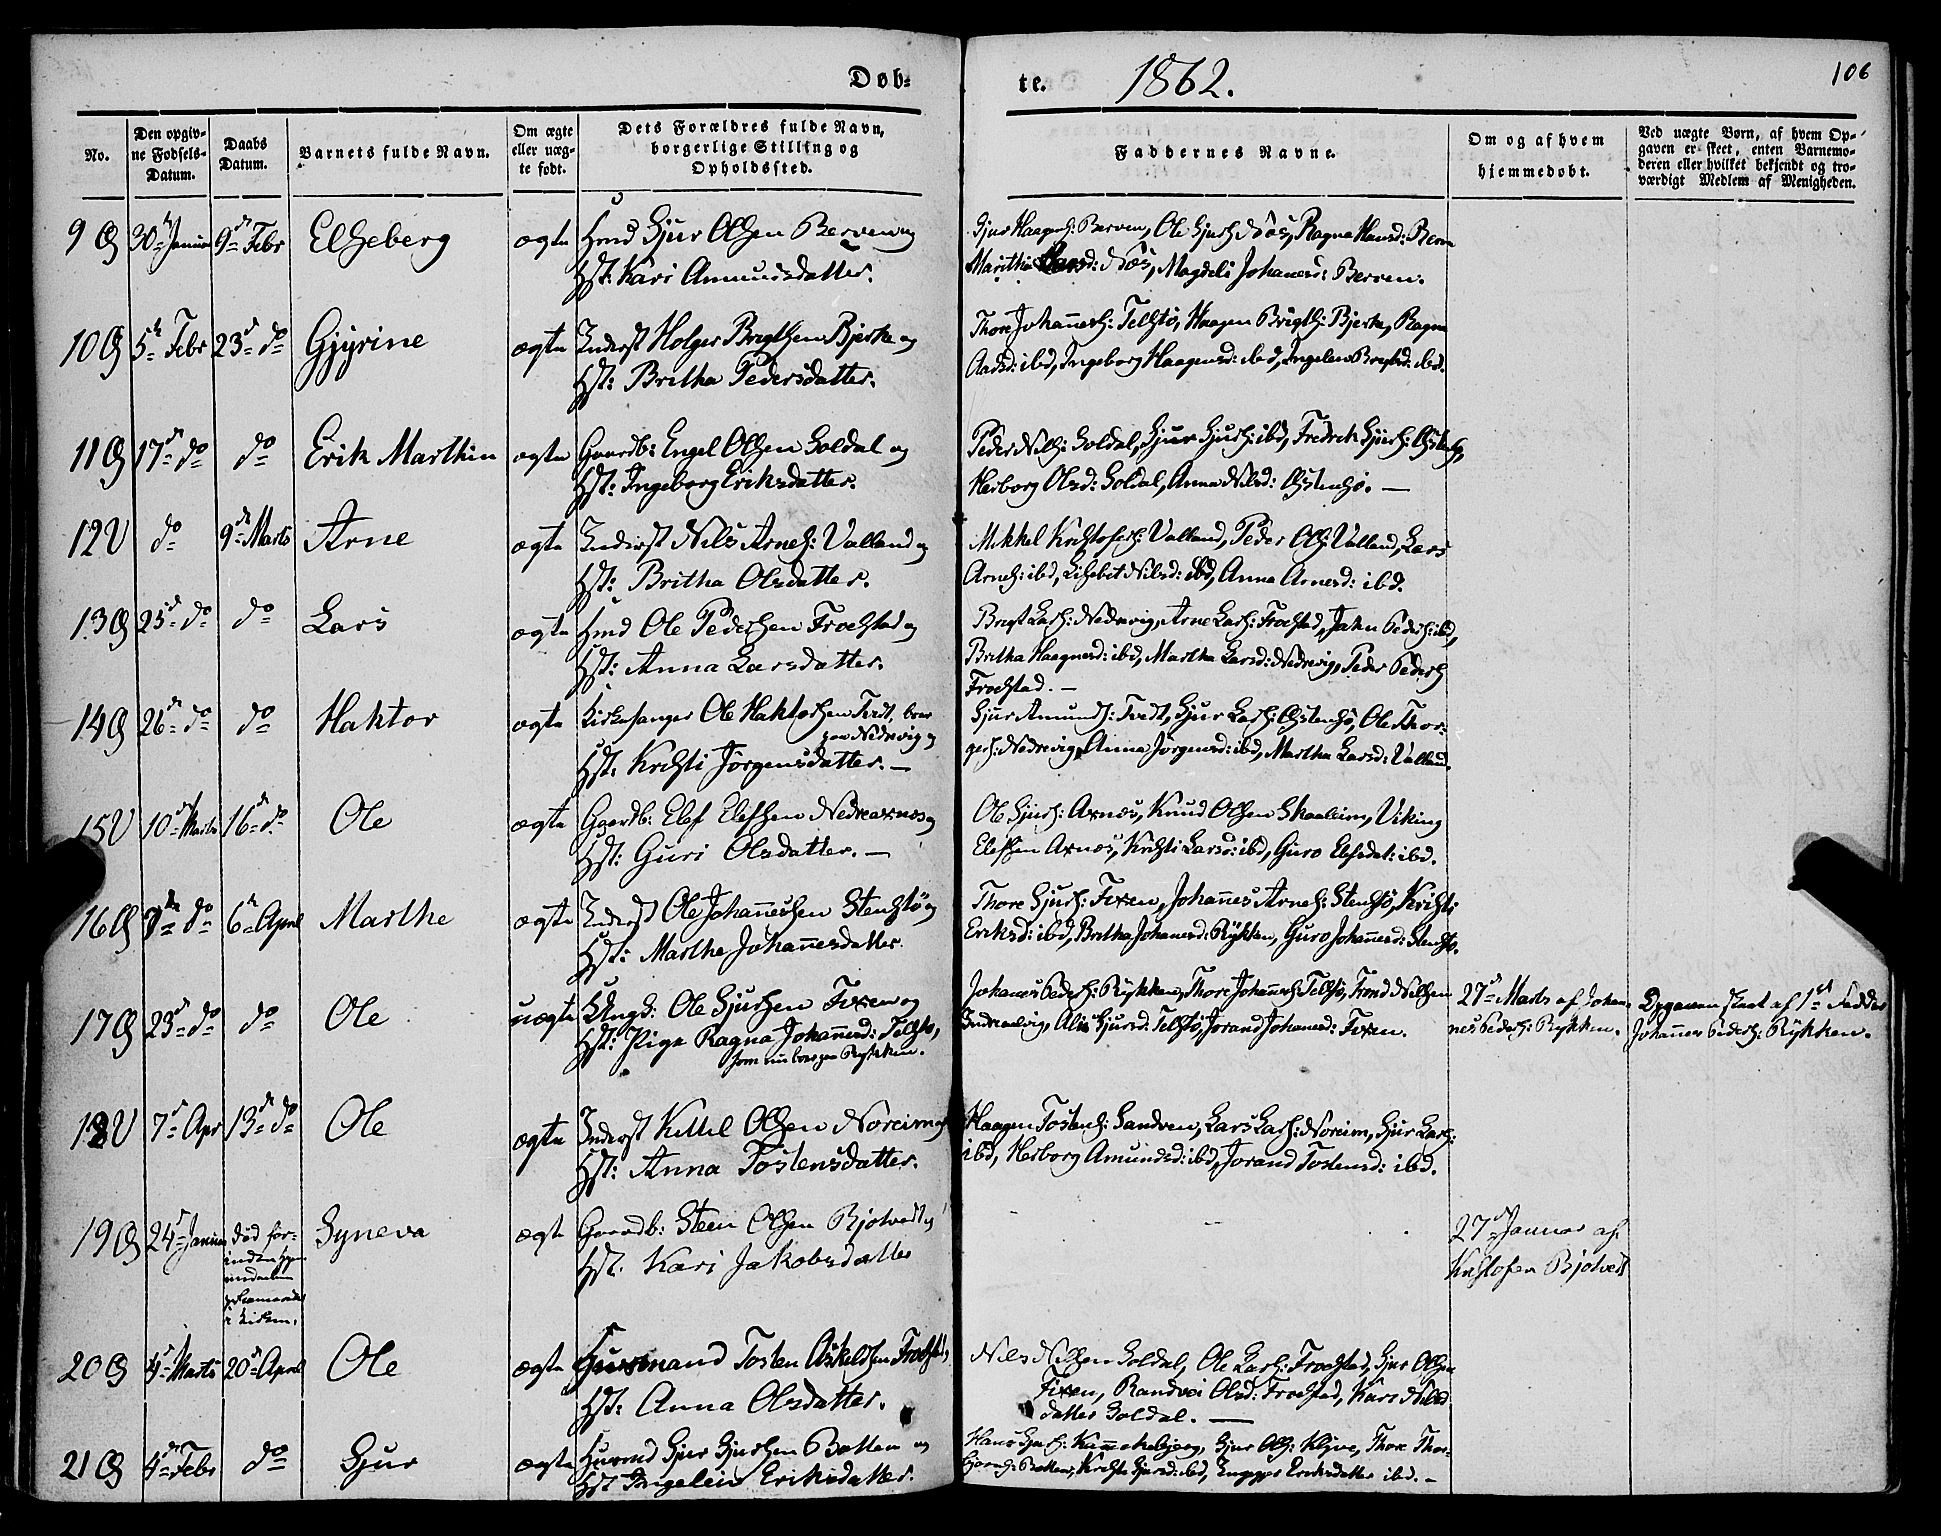 Døb-
te. 1862. 106
No.
Den opgiv-
ne Fødsels-
Datum.
Daabs
Datum.
Barnets fulde Navn.
Om ægte
eller uæg-
te født.
Dets Forældres fulde Navn,
borgerlige Stilling og
Opholdssted.
Faddernes Navne.
Om og af hvem
hjemmedøbt.
Ved uægte Børn, af hvem Op-
gaven er skeet, enten Barnemo-
deren eller hvilket bekjendt og tro-
værdigt Medlem af Menigheden.
9 30 Januar 9 Febr Elseberg ægte Hmd Sjur Olsen Berven og
Hst: Kari Amundsdatter.
Ole Sjurs: Næs, Ragna Hansd:
Næs, Magdeli Johanesd: Berven.
10 5 Febr 23 do Gjyrine ægte Inderst Holger Brigtsen Bjerke og
Hst: Britha Pedersdatter.
Thore Johannes: Telstø, Haagen Brigts: Bjerke, Ragna
ibd, Ingeborg Haagensd: ibd, ibd.
11 17 do do Erik Marthin ægte Gaardb: Engel Olsen Soldal og
Hst: Ingeborg Eriksdatter.
Peder Nils: Soldal, Sjur Sjurs: ibd, Fredrik Sjurs:
Herborg Olsd: Soldal, Anna Nilsd:
12 V do 9 Marts Arne ægte Inderst Nils Arnes: Valland og
Hst: Britha Olsdatter.
Mikkel Valland, Peder Ols: Valland, Lars
Arnes: ibd, Lisebet Nilsd: ibd, Anna Arnesd: ibd.
13 25 do do Lars ægte Hmd Ole Pedersen Trodstad og
Hst: Anna Larsdatter.
Lars: Nedrevig, Arne Lars: Trodstad, Peders: ibd,
Britha Haagensd: ibd, Martha Larsd: Nedrevig, Peder Peders
Trodstad. —
14 26 do do Haktor ægte Kirkesanger Ole Haktorsen Tvedt, boer
paa Nedrevig og
Hst: Kristi Jørgensdatter. —
Sjur Amunds: Tvedt, Sjur Lars: Ole Thor-
Nedrevig, Anna Jørgensd: ibd, Martha Larsd: Valland.
15 V 10 Marts 16 do Ole ægte Gaardb: Elef Elefsen Nedreaxnæs og
Hst: Guri Olsdatter. —
Ole Sjurs: Axnæs, Knud Olsen Skaaleim, Viking
Elefsen Axnæs, Kristi Larsd: ibd, Guro Elefsdat: ibd.
16 do 6 April Marthe ægte Inderst Ole Johannessen Stenstø og
Hst: Marthe Johannesdatter.
Thore Sjurs: Fixen, Johannes Arnes: Stenstø, Kristi
Eriksd: ibd, Britha Johanesd: Rykken, Guro Johannesd: Stenstø.
17 23 do do Ole uægte Ungk: Ole Sjursen Fixen og
Hst: Pige Ragna Johannesd: Telstø,
som nu boer paa Rykken.
Johanes Peders: Rykken, Thore Johannes: Telstø, Trond Nilsen
Sjursd: Telstø, Jorand Johanesd: Fixen.
27 Marts af Johan-
nes Peders: Rykken.
skeet af 1st Fadder
Johannes Peders: Rykken.
18 V 7 Apr 13 do Ole ægte Inderst Kittel Olsen Noreim og
Hst: Anna Tostensdatter.
Haagen Tostens: Sandven, Lars Lars: Noreim, Sjur Lars:
ibd, Herborg Amundsd: ibd, Jorand Tostensd: ibd.
19 24 Januar død for-
i Kirken.
Syneva ægte Gaardb: Steen Olsen Bjotvedt og
Hst. Kari Jakobsdatter
27 Januar af
Kristofer Bjotvedt
20 4 Marts 20 April Ole ægte Huusmand Tosten Askeldsen Trodstad,
Hst: Anna Olsdatter.
Nils Nilsen Soldal, Ole Lars: Trodstad, Sjur Olsen
Fixen, Randvei Olsd: Trodstad, Kari Nils-
datter Soldal. —
21 4 Febr do Sjur ægte Huusmd Sjur Sjursen Botten og
Hst Ingelein Eriksdatter.
Hans Sjurs: Sjur Ols: Klyve, Thore Thor-
Botten, Kristi Sjursd: ibd, Eriksdatter ibd. —